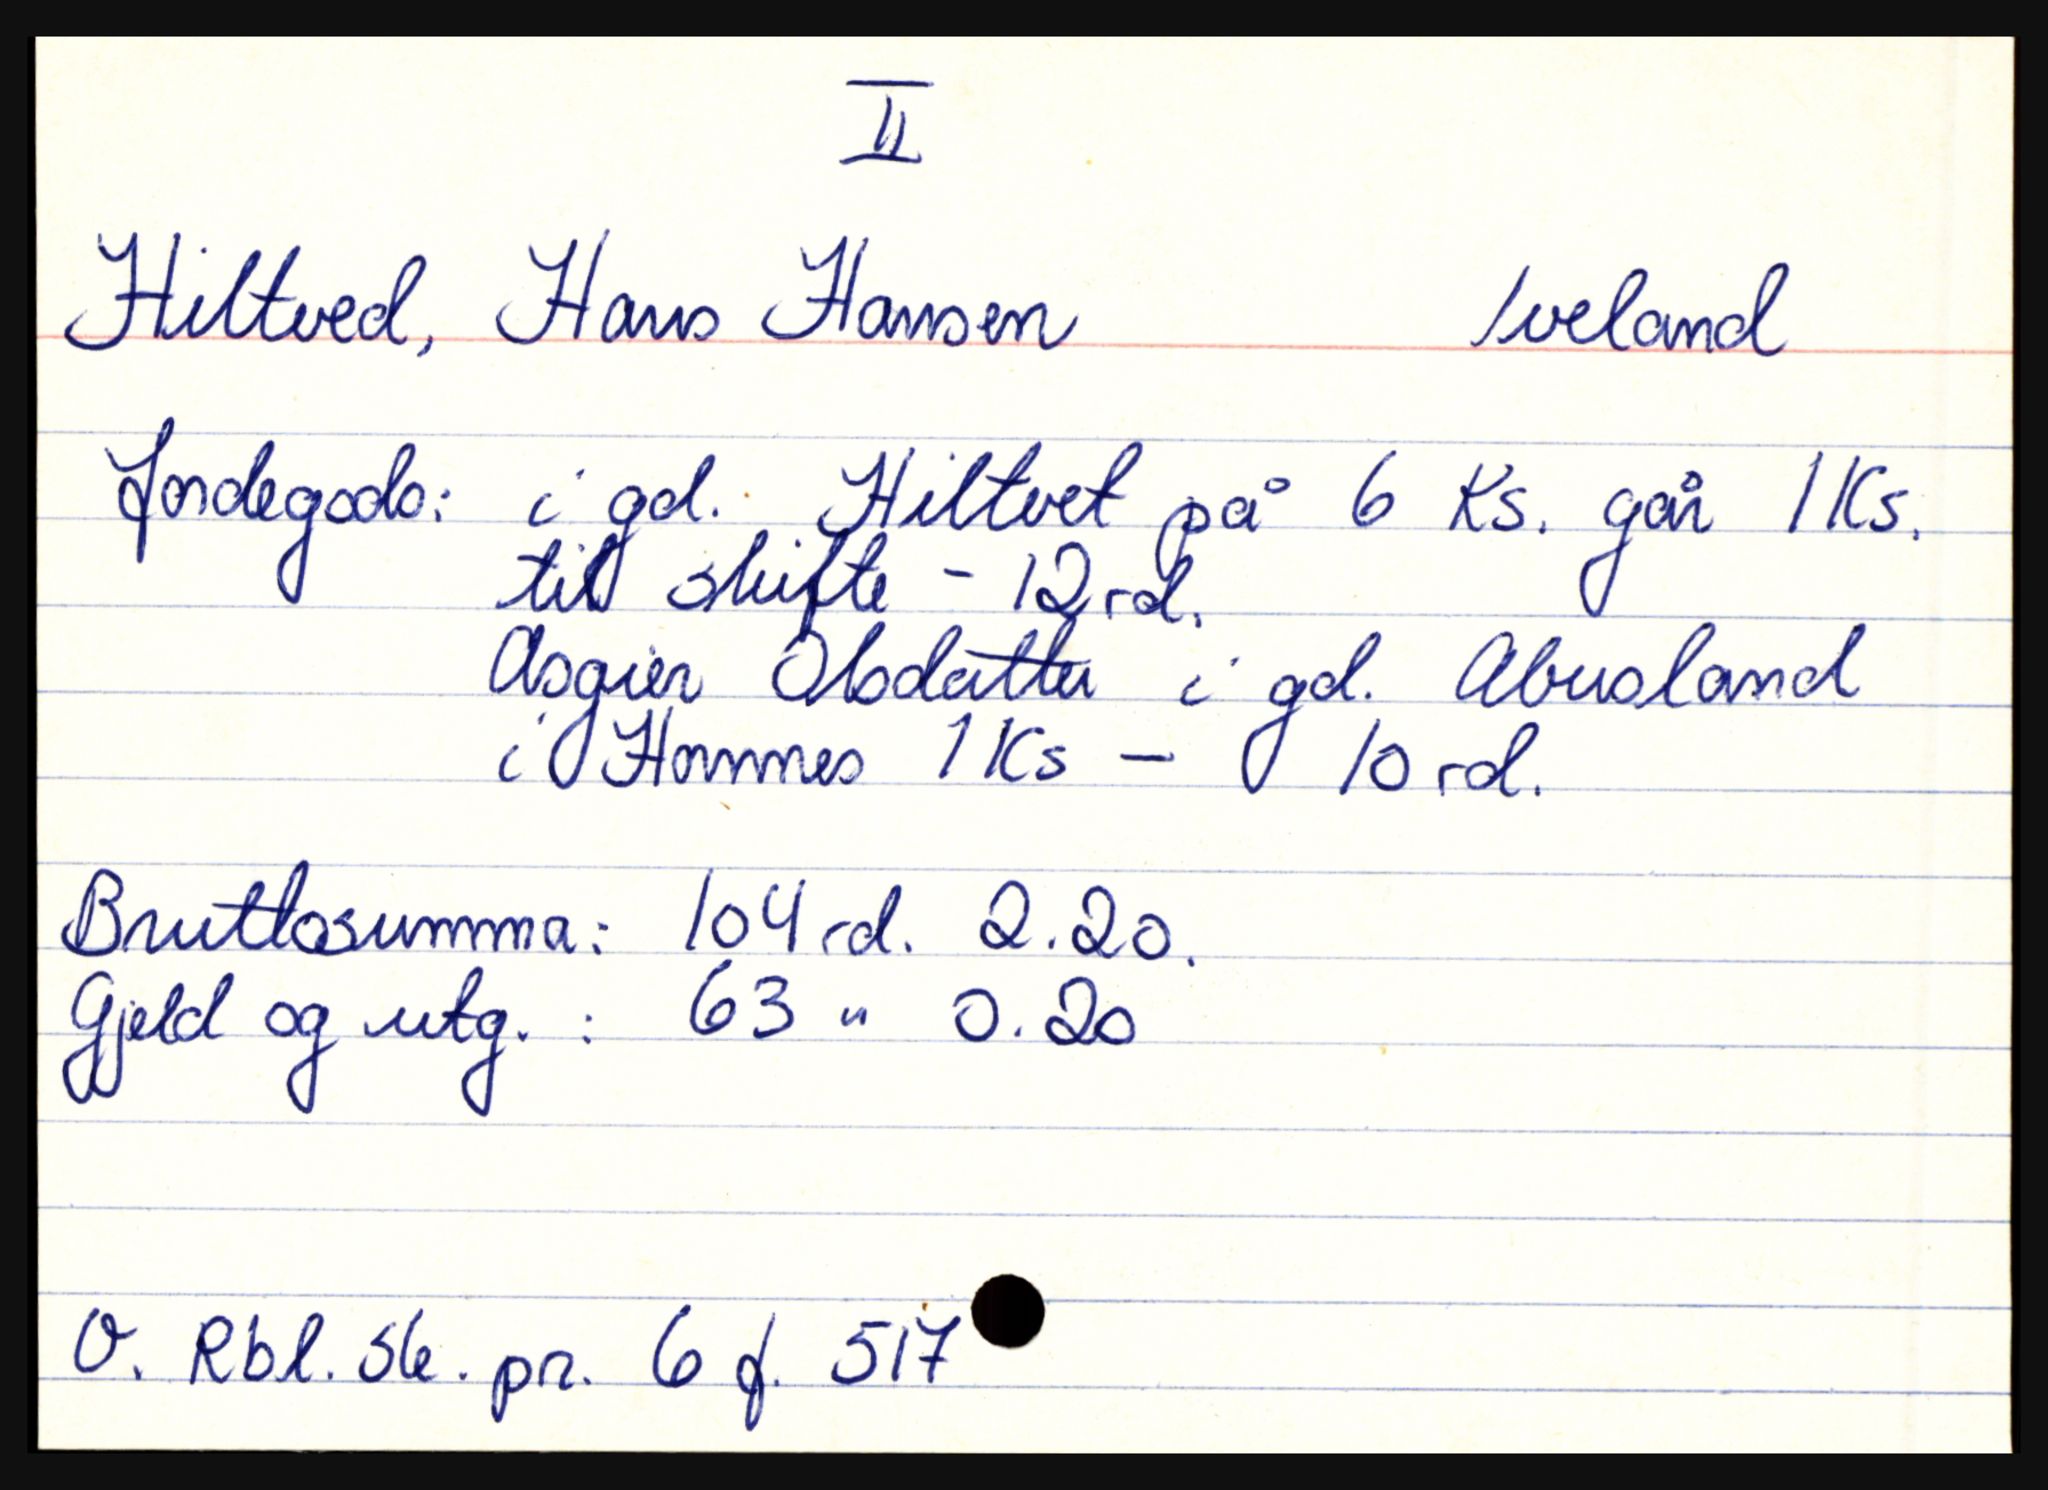 II
Hiltved, Hans Hansen Iveland
Jordegods: i gd. Hiltvet på 6 Ks. går 1 Ks.
til skifte - 12 rd.
Asgier Olsdatter i gd. Abusland
i Hornnes 1 Ks - 10 rd.
Bruttosumma: 104 rd. 2.20.
Gjeld og utg. : 63 " 0.20
O. Rbl. Sk. pr. 6 f. 517